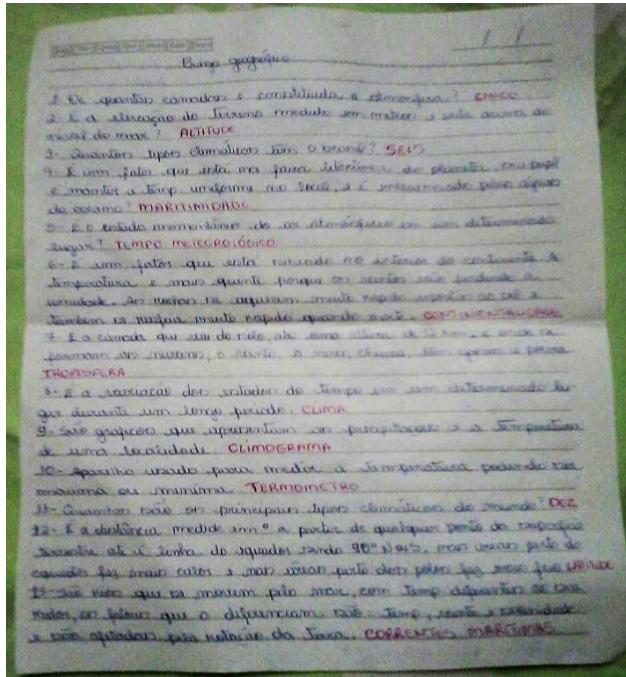 Bingo geográfico
1- De quantas camadas é constituída a atmosfera? CINCO
2- É a elevação do terreno medida em metros e está acima do
nível do mar? ALTITUDE
3- Quantos tipos climáticos tem o brasil? SEIS
4- É um fator que está na faixa litorânea do planeta, seu papel
é manter a temp. uniforme no local, e é influenciado pelas águas
do oceano? MARITIMIDADE
5- É o estado momentâneo do ar atmosférico em um determinado
lugar? TEMPO METEOROLÓGICO
6- É um fator que está situado no interior do continente. A
temperatura é mais quente porque os ventos vão perdendo a
umidade. As rochas se aquecem muito rápido expostas ao sol e
também se resfria muito rápido quando CONTINENTALIDADE
7- É a camada que vai do solo até uma altura de 12 km, é onde se
formam as nuvens, o vento, a neve, chuva,
TROPOSFERA
8- É a variação dos estados do tempo em um determinado lu-
gar durante um longo período. CLIMA
9- São gráficos que apresentam as precipitações e a temperatura
de uma localidade. CLIMOGRAMA
10- Aparelho usado para medir a temperatura podendo ser
máxima ou mínima TERMOMETRO
11- Quantos são os principais tipos climáticos do mundo? DEZ
12- É a distância medida em ° a partir de qualquer ponto da superfície
terrestre até a linha do equador sendo 90° N e S, mas perto do
equador faz mais calor e mais perto dos polos faz mais frio LATITUDE
13- São rios que se movem pelo mar, com temp. diferentes
os fatores que o diferenciam são temp.,
e são afetadas pela rotação da Terra. CORRENTES MARÍTIMAS